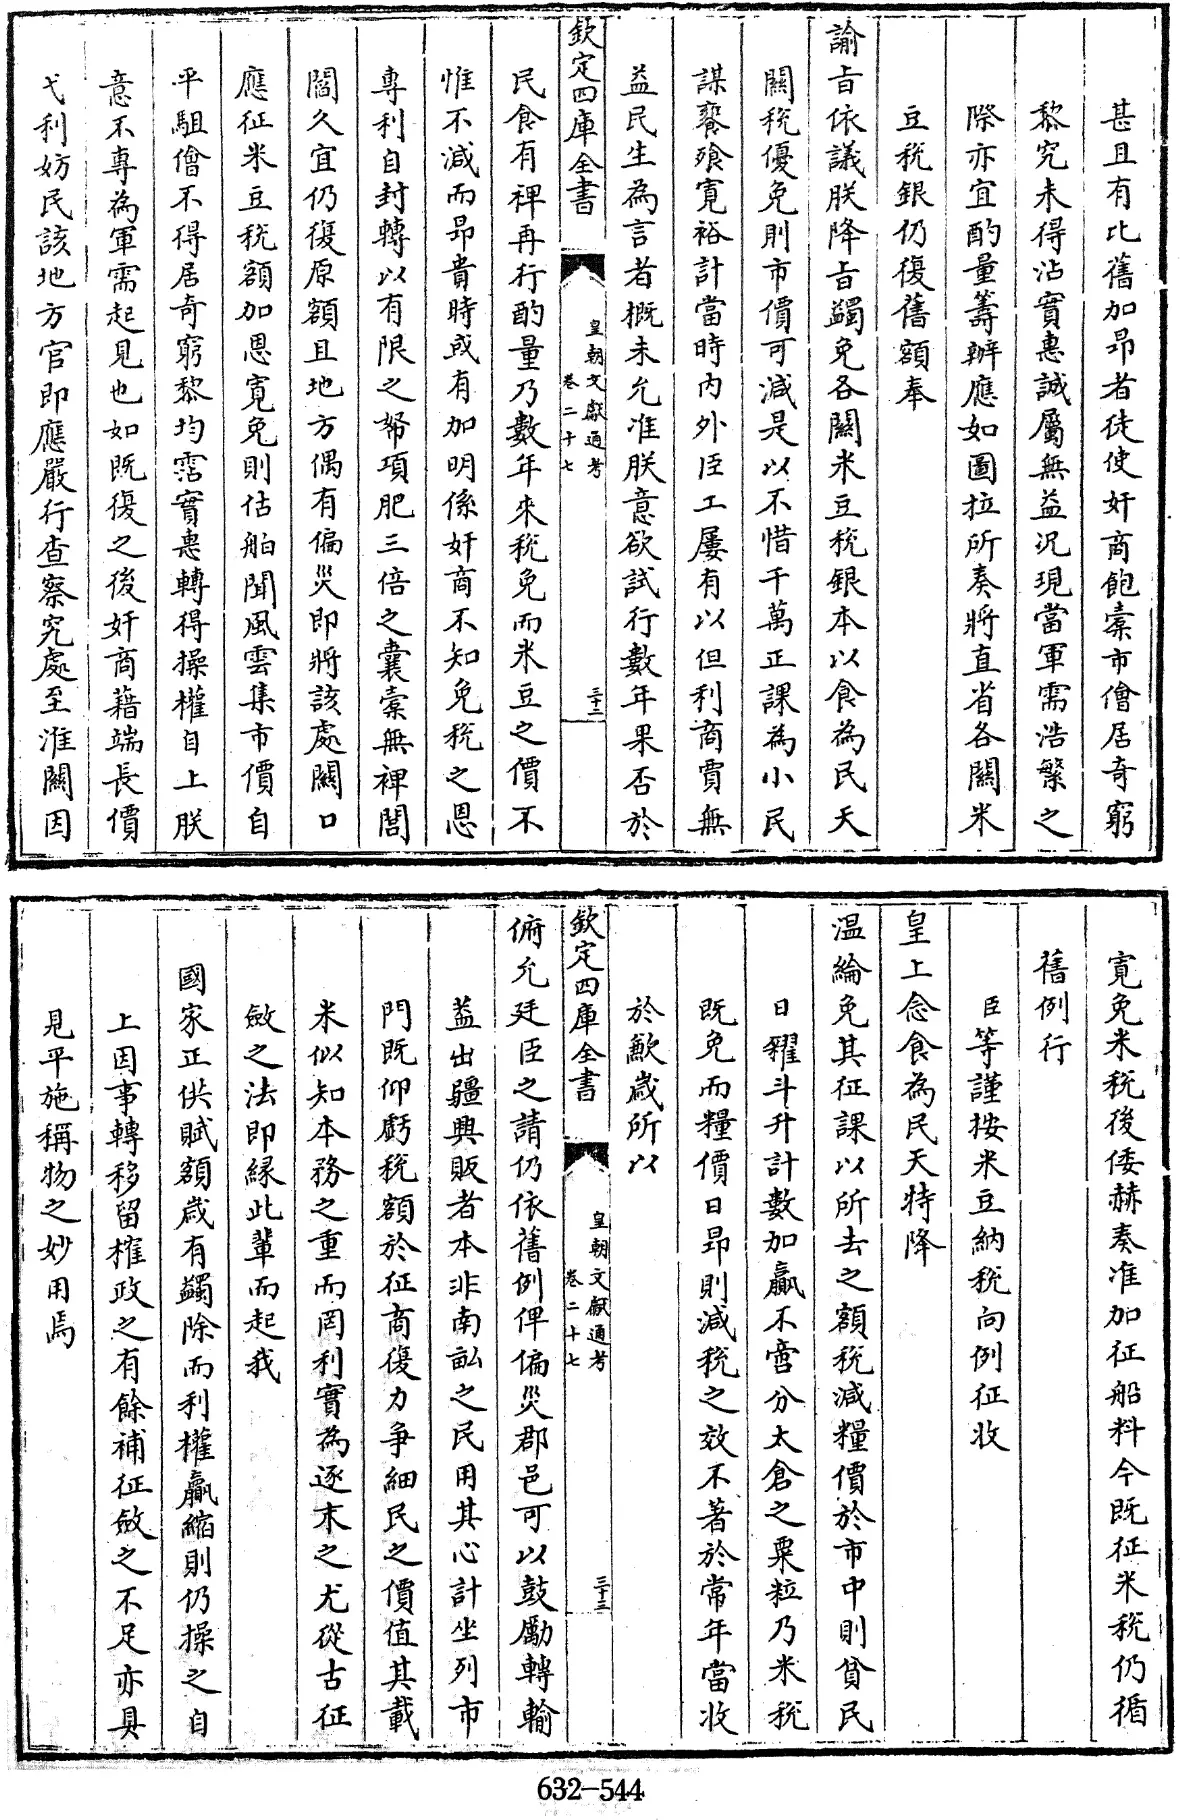 甚且有比舊加昂者徒使奸商飽槖市儈居竒窮
黎究未得沾實惠誠屬無益况現當軍需浩繁之
際亦宜酌量籌辦應如圖拉所奏將直省各關米
豆税銀仍復舊額奉
諭旨依議朕降旨蠲免各關米豆税銀本以食為民天
關税優免則市價可減是以不惜千萬正課為小民
謀饔飱寛裕計當時内外臣工屢有以但利商賈無
益民生為言者概未允准朕意欲試行數年果否於
欽定四庫全書
皇朝文獻通考
卷二十七
三十二
民食有裨再行酌量乃數年來税免而米豆之價不
惟不減而昻貴時或有加明係奸商不知免税之恩
專利自封轉以有限之帑項肥三倍之囊槖無裨閭
閻久宜仍復原額且地方偶有偏災即將該處關口
應征米豆税額加恩寛免則估舶聞風雲集市價自
平駔儈不得居奇窮黎均霑實惠轉得操權自上朕
意不專為軍需起見也如既復之後奸商藉端長價
弋利妨民該地方官即應嚴行查察究處至淮關因
寛免米税後倭赫奏准加征船料今既征米税仍循
舊例行
臣等謹按米豆納税向例征收
皇上念食為民天特降
温綸免其征課以所去之額税減糧價於市中則貸民
日糴斗升計數加贏不啻分太倉之粟粒乃米税
既免而糧價日昻則減税之效不著於常年當收
於歉歲所以
欽定四庫全書
皇朝文獻通考
卷二十七
三十三
俯允廷臣之請仍依舊例俾偏災郡邑可以鼓勵轉輸
葢出疆興販者本非南畝之民用其心計坐列市
門既仰虧税額於征商復力争細民之價值其載
米似知本務之重而罔利實為逐末之尤從古征
斂之法即緣此輩而起我
國家正供賦額歲有蠲除而利權贏縮則仍操之自
上因事轉移留榷政之有餘補征斂之不足亦具
見平施稱物之妙用焉
632-544